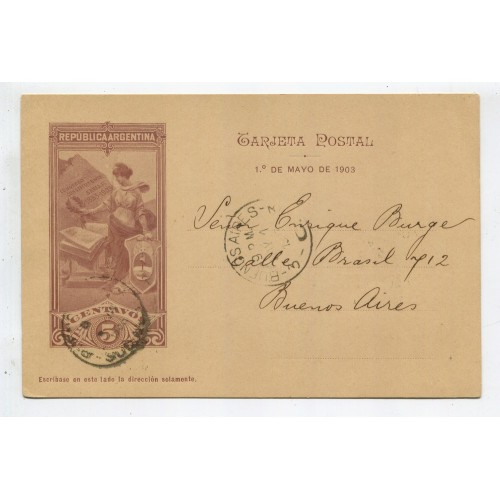 REPÚBLICA ARGENTINA
TARJETA POSTAL
1.º DE MAYO DE 1903
Señor Enrique Burge
Calle Brasil 712
Buenos Aires
BUENOS AIRES
CENTAVOS
5
Escríbase en este lado la dirección solamente.